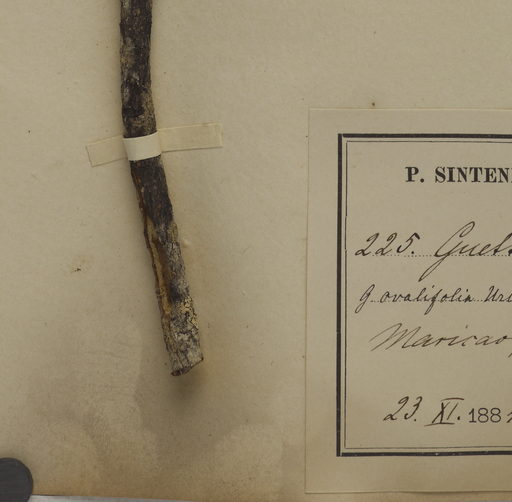 P. SINTEN
225. Guett
G ovalifolia Ur
Maricao,
23. XI. 188